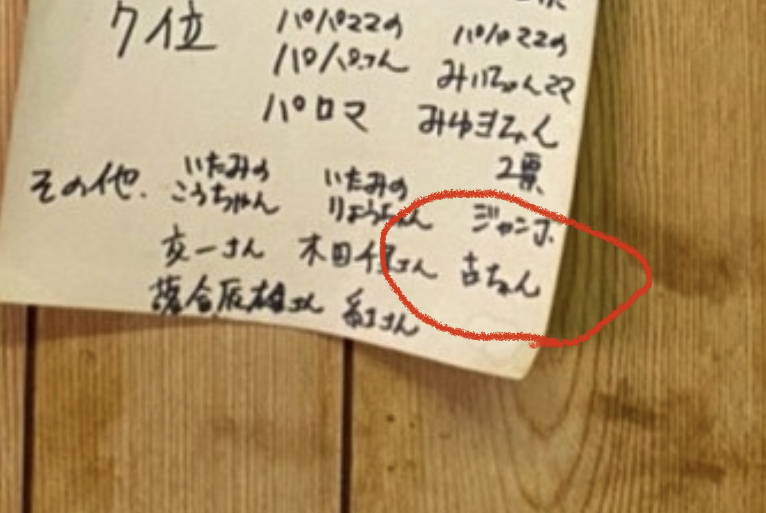 7位 パパママの パパママの
パパさん みいちゃんママ
パロマ みゆきちゃん
2票
その他. いたみの いたみの
こうちゃん りょうちゃん ジャンボ
一さん 木田 さん 古ちゃん
落合 さん 紅さん